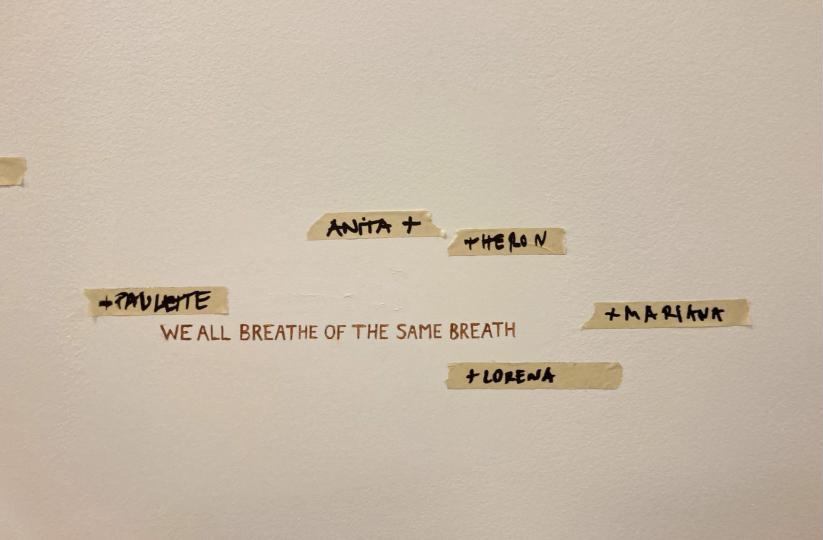 ANITA +
+HERON
+PAULETTE
+MARIANA
WE ALL BREATHE OF THE SAME BREATH
+LORENA